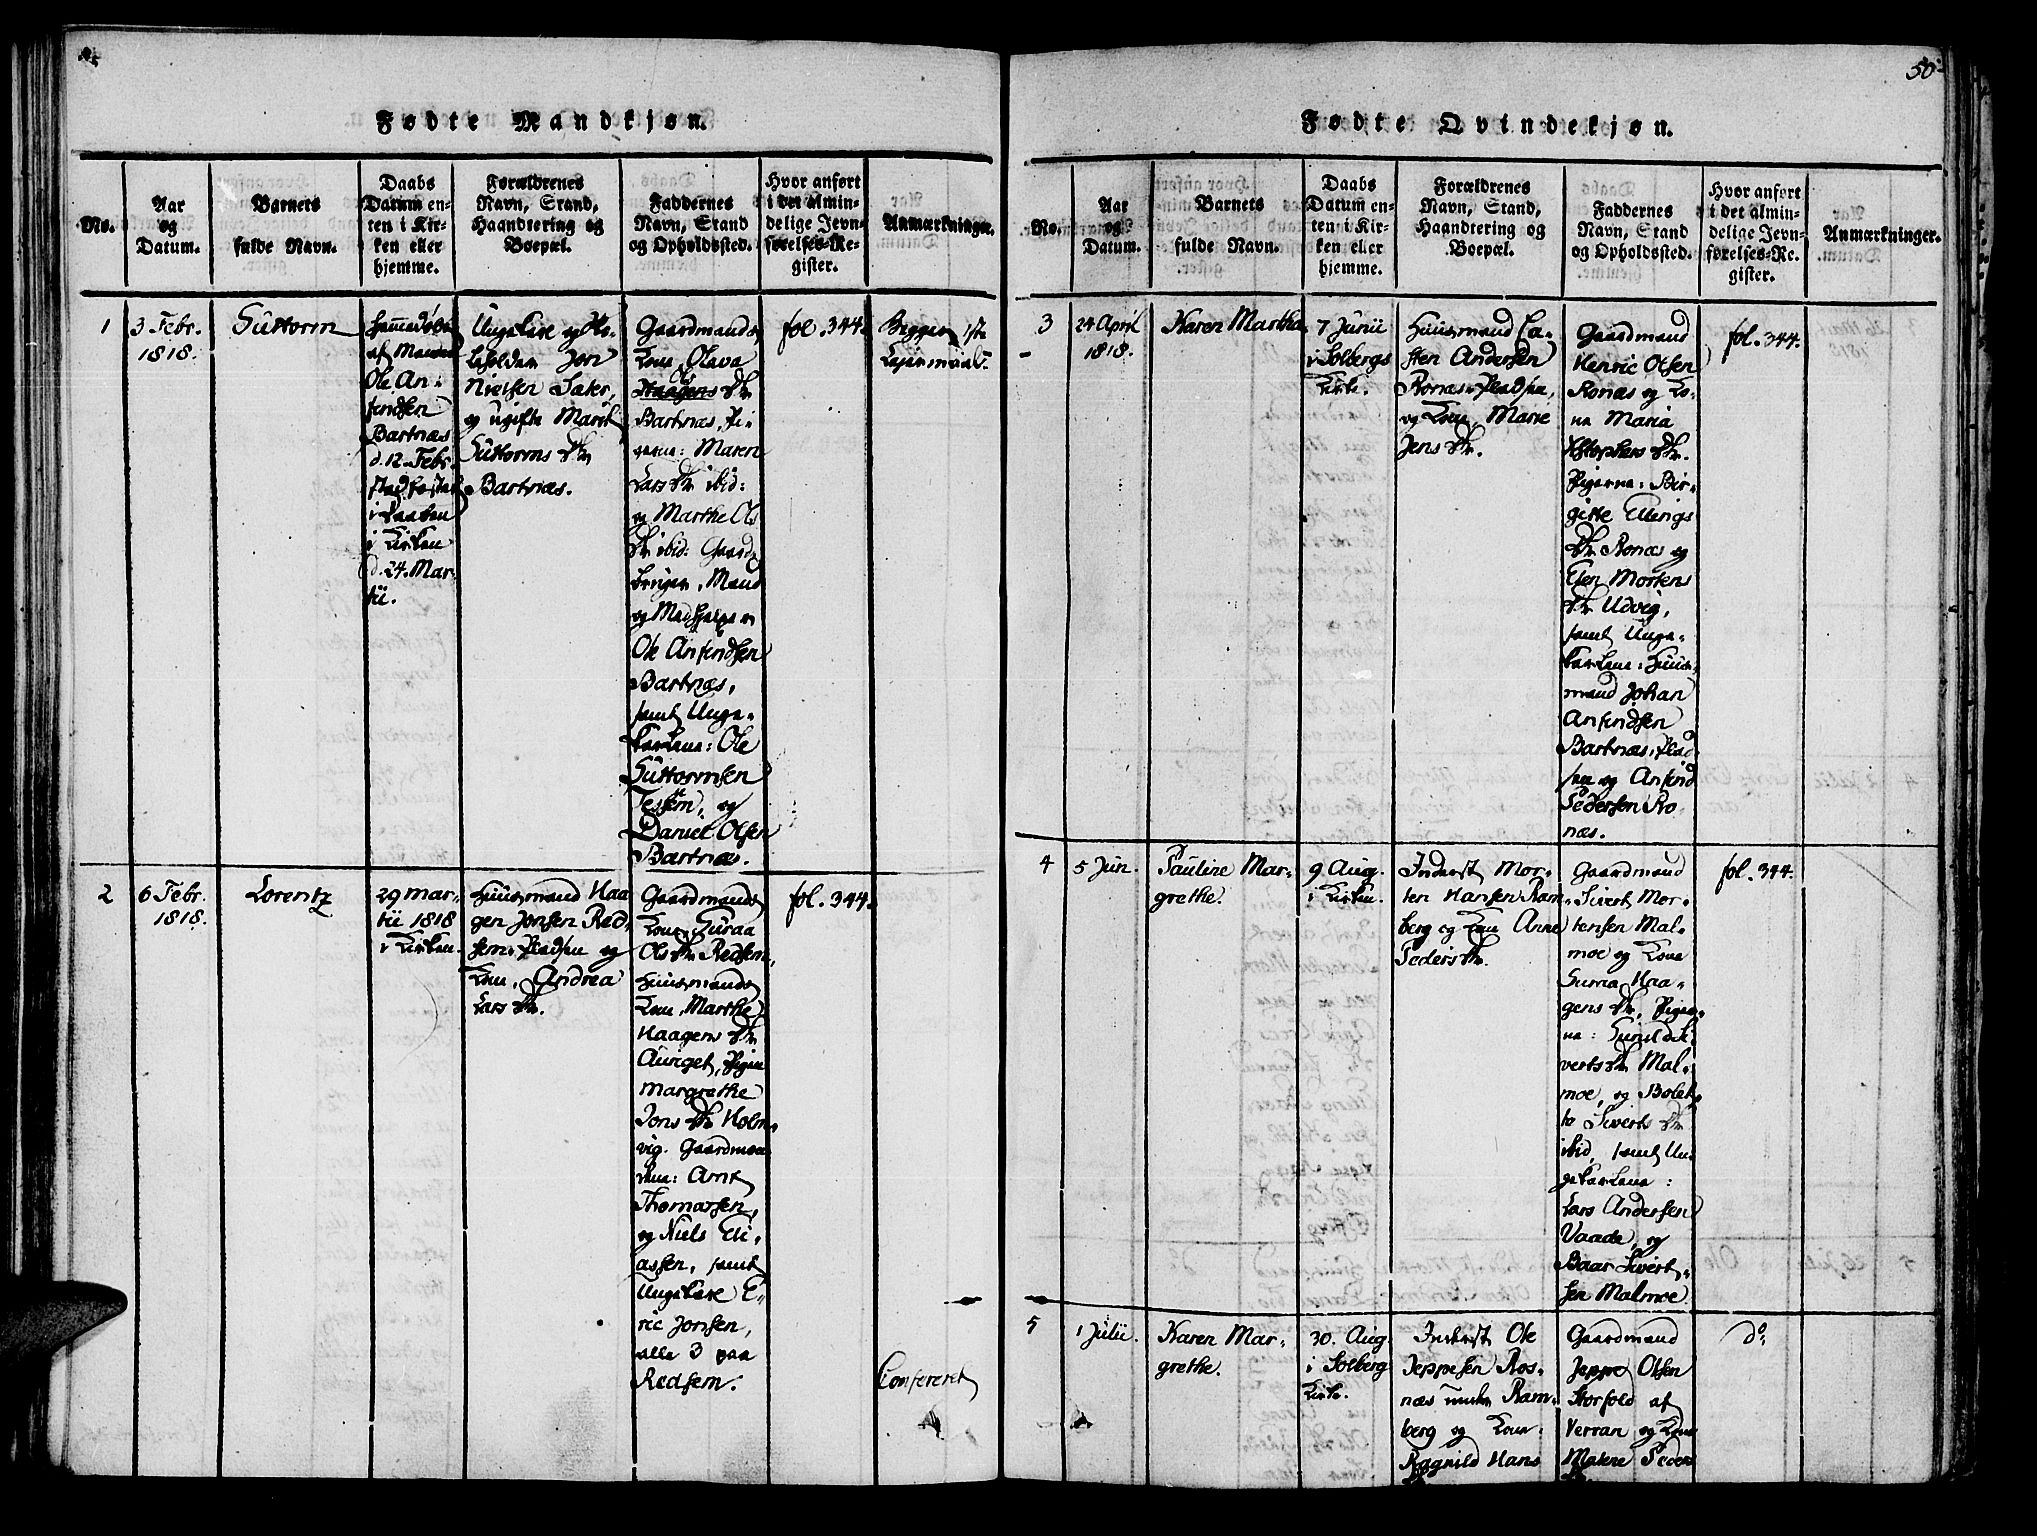 50
Fødte Mandkjøn.
No.
Aar
og
Datum.
Barnets
fulde Navn.
Daabs
Datum en-
ten i Kir-
ken eller
hjemme.
Forældrenes
Navn, Stand,
Haandtering og
Boepæl.
Faddernes
Navn, Stand
og Opholdssted.
Hvor anført
i det almin-
delige Jevn-
førelses-Re-
gister.
Anmærkninger.
1
3 Febr.
1818.
Guttorm
af
Ole An-
findsen
Bartnæs
d. 12 Febr.
i Kirken
d. 24. Mar-
tii.
Ungekarl og
Jon
Nielsen
og ugifte Marit
Guttorms Dtr
Bartnæs.
Gaardmands
Kone Olava
Ols
Haagens Dtr
Bartnæs, Pi-
gerne: Maren
Lars Dtr ibid:
og Marthe Ols
Dtr ibid: Gaard-
bruger, Mand
og Medhjelper
Ole Anfindsen
Bartnæs,
samt Unge-
karlene: Ole
Guttormsen
og
Daniel Olsen
Bartnæs.
fol. 344.
Begges 1ste
Leiermaal.
2
6 Febr.
1818.
Lorentz
29 Mar-
tii 1818
i Kirken.
Huusmand Haa
gen Jonsen Red-
sem-Pladsen og
Kone, Andrea
Lars Dtr.
Gaardmands
Kone Guraa
Ols Dtr Redsem,
Huusmands
Kone, Marthe
Haagens Dtr
Pigen
Margrethe
Jons Dtr Holm-
vig. Gaardmæn
dene: Arnt
Thomassen,
og Niels Eli-
assen, samt
Ungekarl E-
ric Jonsen,
alle 3 paa
Redsem.
fol. 344.
Confereret
Fødte Qvindekjøn.
No.
Aar
og
Datum.
Barnets
fulde Navn.
Daabs
Datum en-
ten i Kir-
ken eller
hjemme.
Forældrenes
Navn, Stand,
Haandtering og
Boepæl.
Faddernes
Navn, Stand
og Opholdssted.
Hvor anført
i det almin-
delige Jevn-
førelses-Re-
gister.
Anmærkninger.
3
24 April
1818.
Karen Martha
7 Junii
i Solbergs
Kirke.
Huusmand Ca-
sten Andersen
Ronæs-Pladsen,
og Kone, Marie
Jens Dtr.
Gaardmand
Henric Olsen
Ronæs og Ko-
ne Maria
Xstophers Dtr.
Pigerne: Bir-
gitte Ellings
Dtr Ronæs og
Elen Mortens
Dtr Udvig,
samt Unge-
karlene: Huus-
mand Johan
Anfindsen
Bartnæs-Plad-
sen og Anfind
Pedersen Ro-
næs.
fol. 344.
4
5 Jun.
Pauline Mar-
grethe.
9 Aug.
i Kirken.
Inderst Mor-
ten Hansen Ram-
berg og Kone Anne
Peders Dtr.
Gaardmand
Sivert Mor-
tensen Mal-
moe og Kone
Guma Haa-
gens Dtr, Piger-
ne: Gunild Si-
verts Dtr Mal-
moe, og Bolet-
te Siverts Dtr
ibid, samt Un-
gekarlene:
Lars Andersen
Vaade, og
Baar Sivert-
sen Malmoe.
fol. 344.
5
1 Julii.
Karen Mar-
grethe.
30. Aug.
i Solberg
Kirke.
Inderst Ole
Jeppesen Ros-
næs under Ram-
berg og Kone
Ragnild Hans
Gaardmand
Jeppe Olsen
Storfold af
Verran og Kone
Malene Peders
do